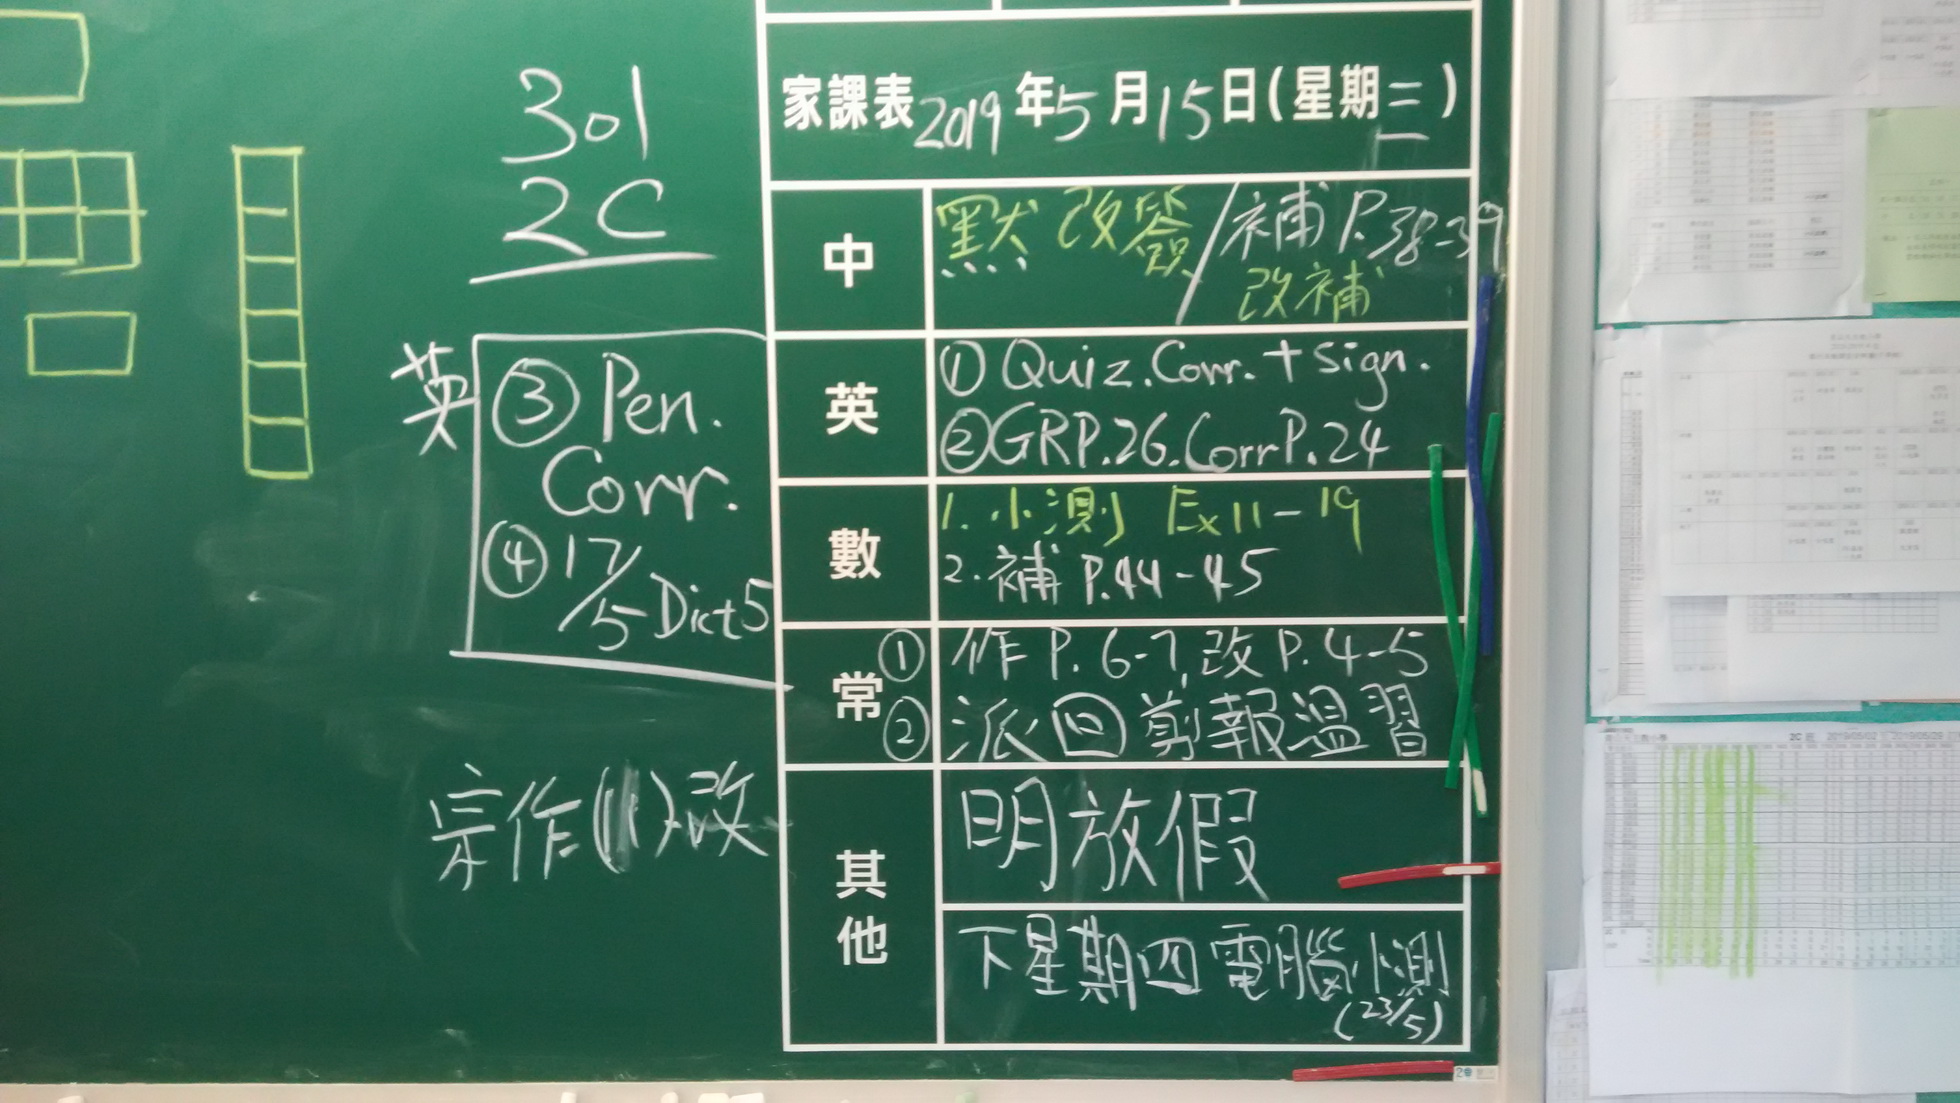 301
2C
家課表2019年5月15日(星期三)
中
默 改簽/補P.38-39
改補
英
① Quiz.Corr.+sign.
②GRP.26.CorrP.24
英
③ Pen.
Corr.
④ 17/5 Dict5
數
1. 小測 Ex11-19
2. 補P.44-45
常
① 作P.6-7,改P.4-5
② 派回剪報溫習
宗作(11)改
其他
明放假
下星期四電腦小測
(23/5)